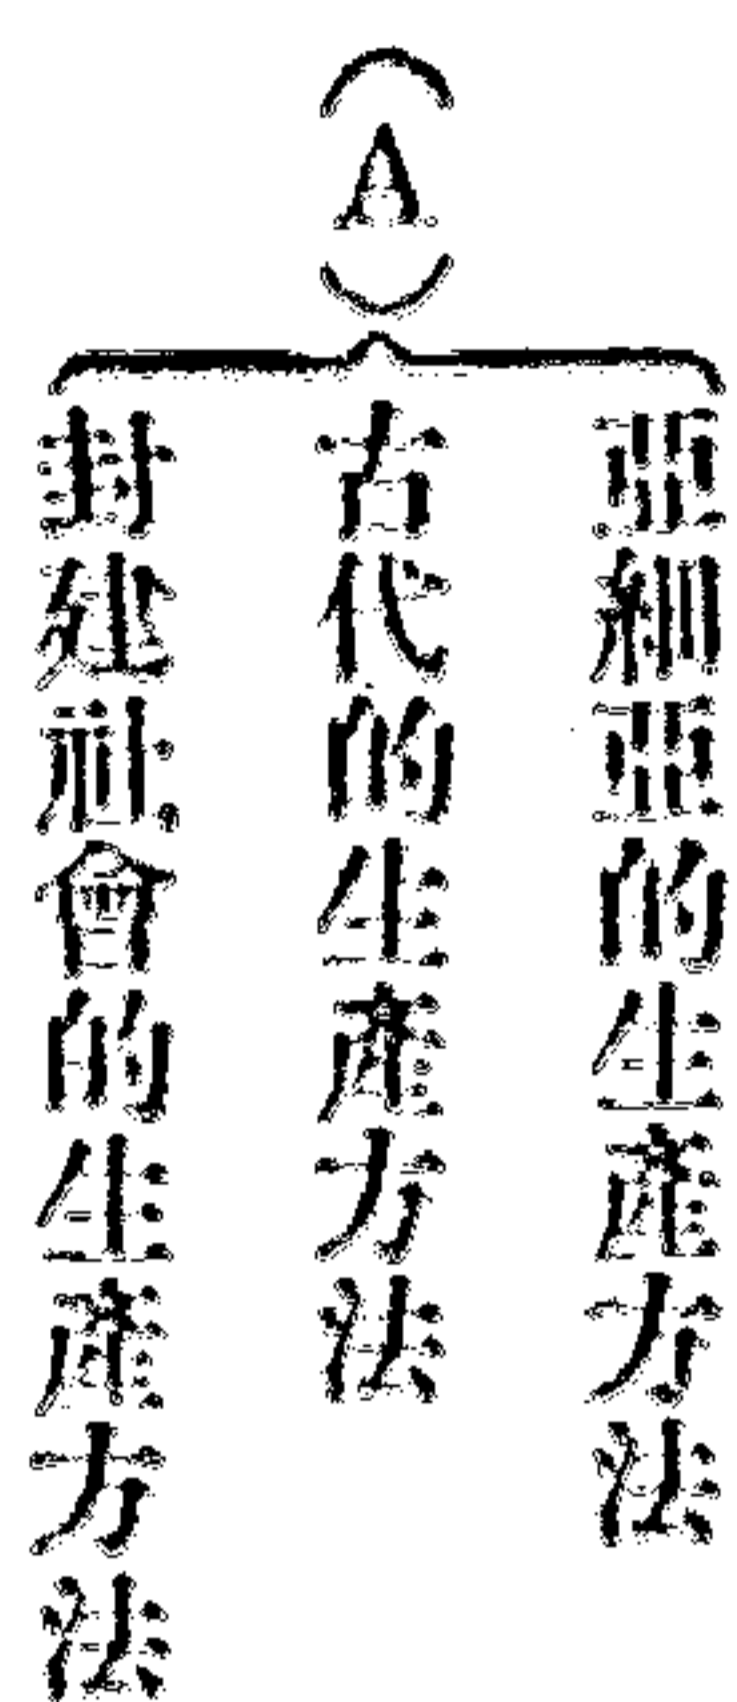 (A)
亞細亞的生產方法
古代的生產方法
封建社會的生產方法